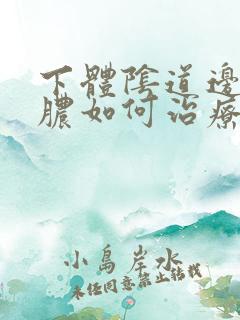 下體陰道邊
膿如何治療
小島岸水
未经同意禁止转载